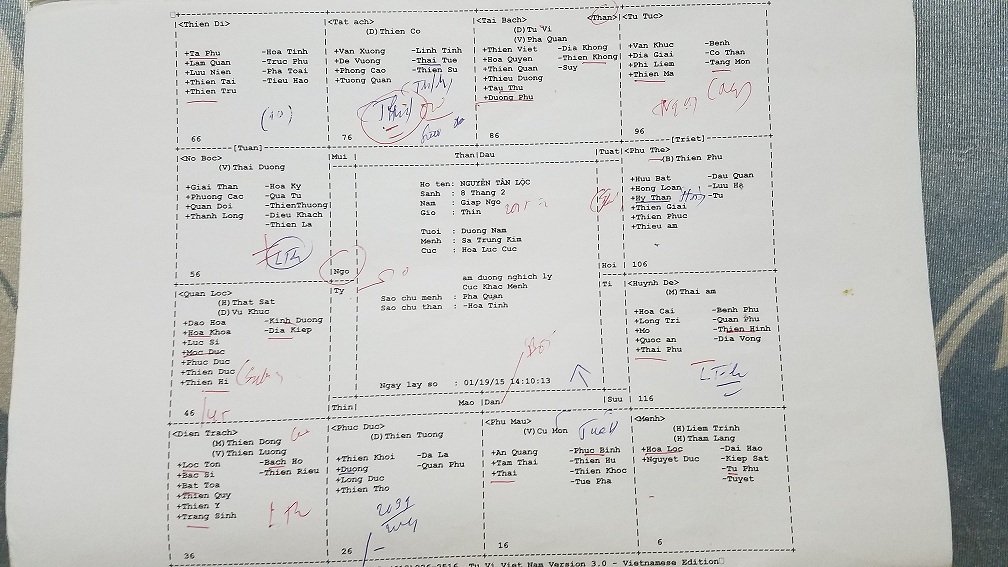 <Thien Di>
+Ta Phu -Hoa Tinh
+Lam Quan -Truc Phu
+Luu Nien -Pha Toai
+Thien Tai -Tieu Hao
+Thien Tru
66
<Tat ach>
(D)Thien Co
+Van Xuong -Linh Tinh
+De Vuong -Thai Tue
+Phong Cao -Thien Su
+Tuong Quan
76
<Tai Bach> <Than>
(D)Tu Vi
(V)Pha Quan
+Thien Viet -Dia Khong
+Hoa Quyen -Thien Khong
+Thien Quan -Suy
+Thieu Duong
+Tau Thu
+Duong Phu
86
<Tu Tuc>
+Van Khuc -Benh
+Dia Giai -Co Than
+Phi Liem -Tang Mon
+Thien Ma
96
[Tuan] [Triet]
<No Boc>
(V)Thai Duong
+Giai Than -Hoa Ky
+Phuong Cac -Qua Tu
+Quan Doi -ThienThuong
+Thanh Long -Dieu Khach
-Thien La
56
|Mui | Than|Dau Tuat|
Ho ten: NGUYỄN TẤN LỘC
Sanh : 8 Thang 2
Nam : Giap Ngo
Gio : Thin
Tuoi : Duong Nam
Menh : Sa Trung Kim
Cuc : Hoa Luc Cuc
|Ngo| Hoi |
|Ty Ti |
am duong nghich ly
Cuc Khac Menh
Sao chu menh : Pha Quan
Sao chu than : -Hoa Tinh
Ngay lay so : 01/19/15 14:10:13
|Thin| Mao |Dan| |Suu |
<Phu The>
(B)Thien Phu
+Huu Bat -Dau Quan
+Hong Loan -Luu Hà
+Hy Than -Tu
+Thien Giai
+Thien Phuc
+Thieu am
106
<Quan Loc>
(H)That Sat
(D)Vu Khuc
+Dao Hoa -Kinh Duong
+Hoa Khoa -Dia Kiep
+Luc Si
+Moc Duc
+Phuc Duc
+Thien Duc
+Thien Hi
46
<Huynh De>
(M)Thai am
+Hoa Cai -Benh Phu
+Long Tri -Quan Phu
+Mo -Thien Hinh
+Quoc an -Dia Vong
+Thai Phu
116
<Dien Trach>
(M)Thien Dong
(V)Thien Luong
+Loc Ton -Bach Ho
+Bac Si -Thien Rieu
+Bat Toa
+Thien Quy
+Thien Y
+Trang Sinh
36
<Phuc Duc>
(D)Thien Tuong
+Thien Khoi -Da La
+Duong -Quan Phu
+Long Duc
+Thien Tho
26
<Phu Mau>
(V)Cu Mon
+An Quang -Phuc Binh
+Tam Thai -Thien Hu
+Thai -Thien Khoc
-Tue Pha
16
<Menh>
(H)Liem Trinh
(H)Tham Lang
+Hoa Loc -Dai Hao
+Nguyet Duc -Kiep Sat
-Tu Phu
-Tuyet
6
Tu Vi Viet Nam Version 3.0 - Vietnamese Edition